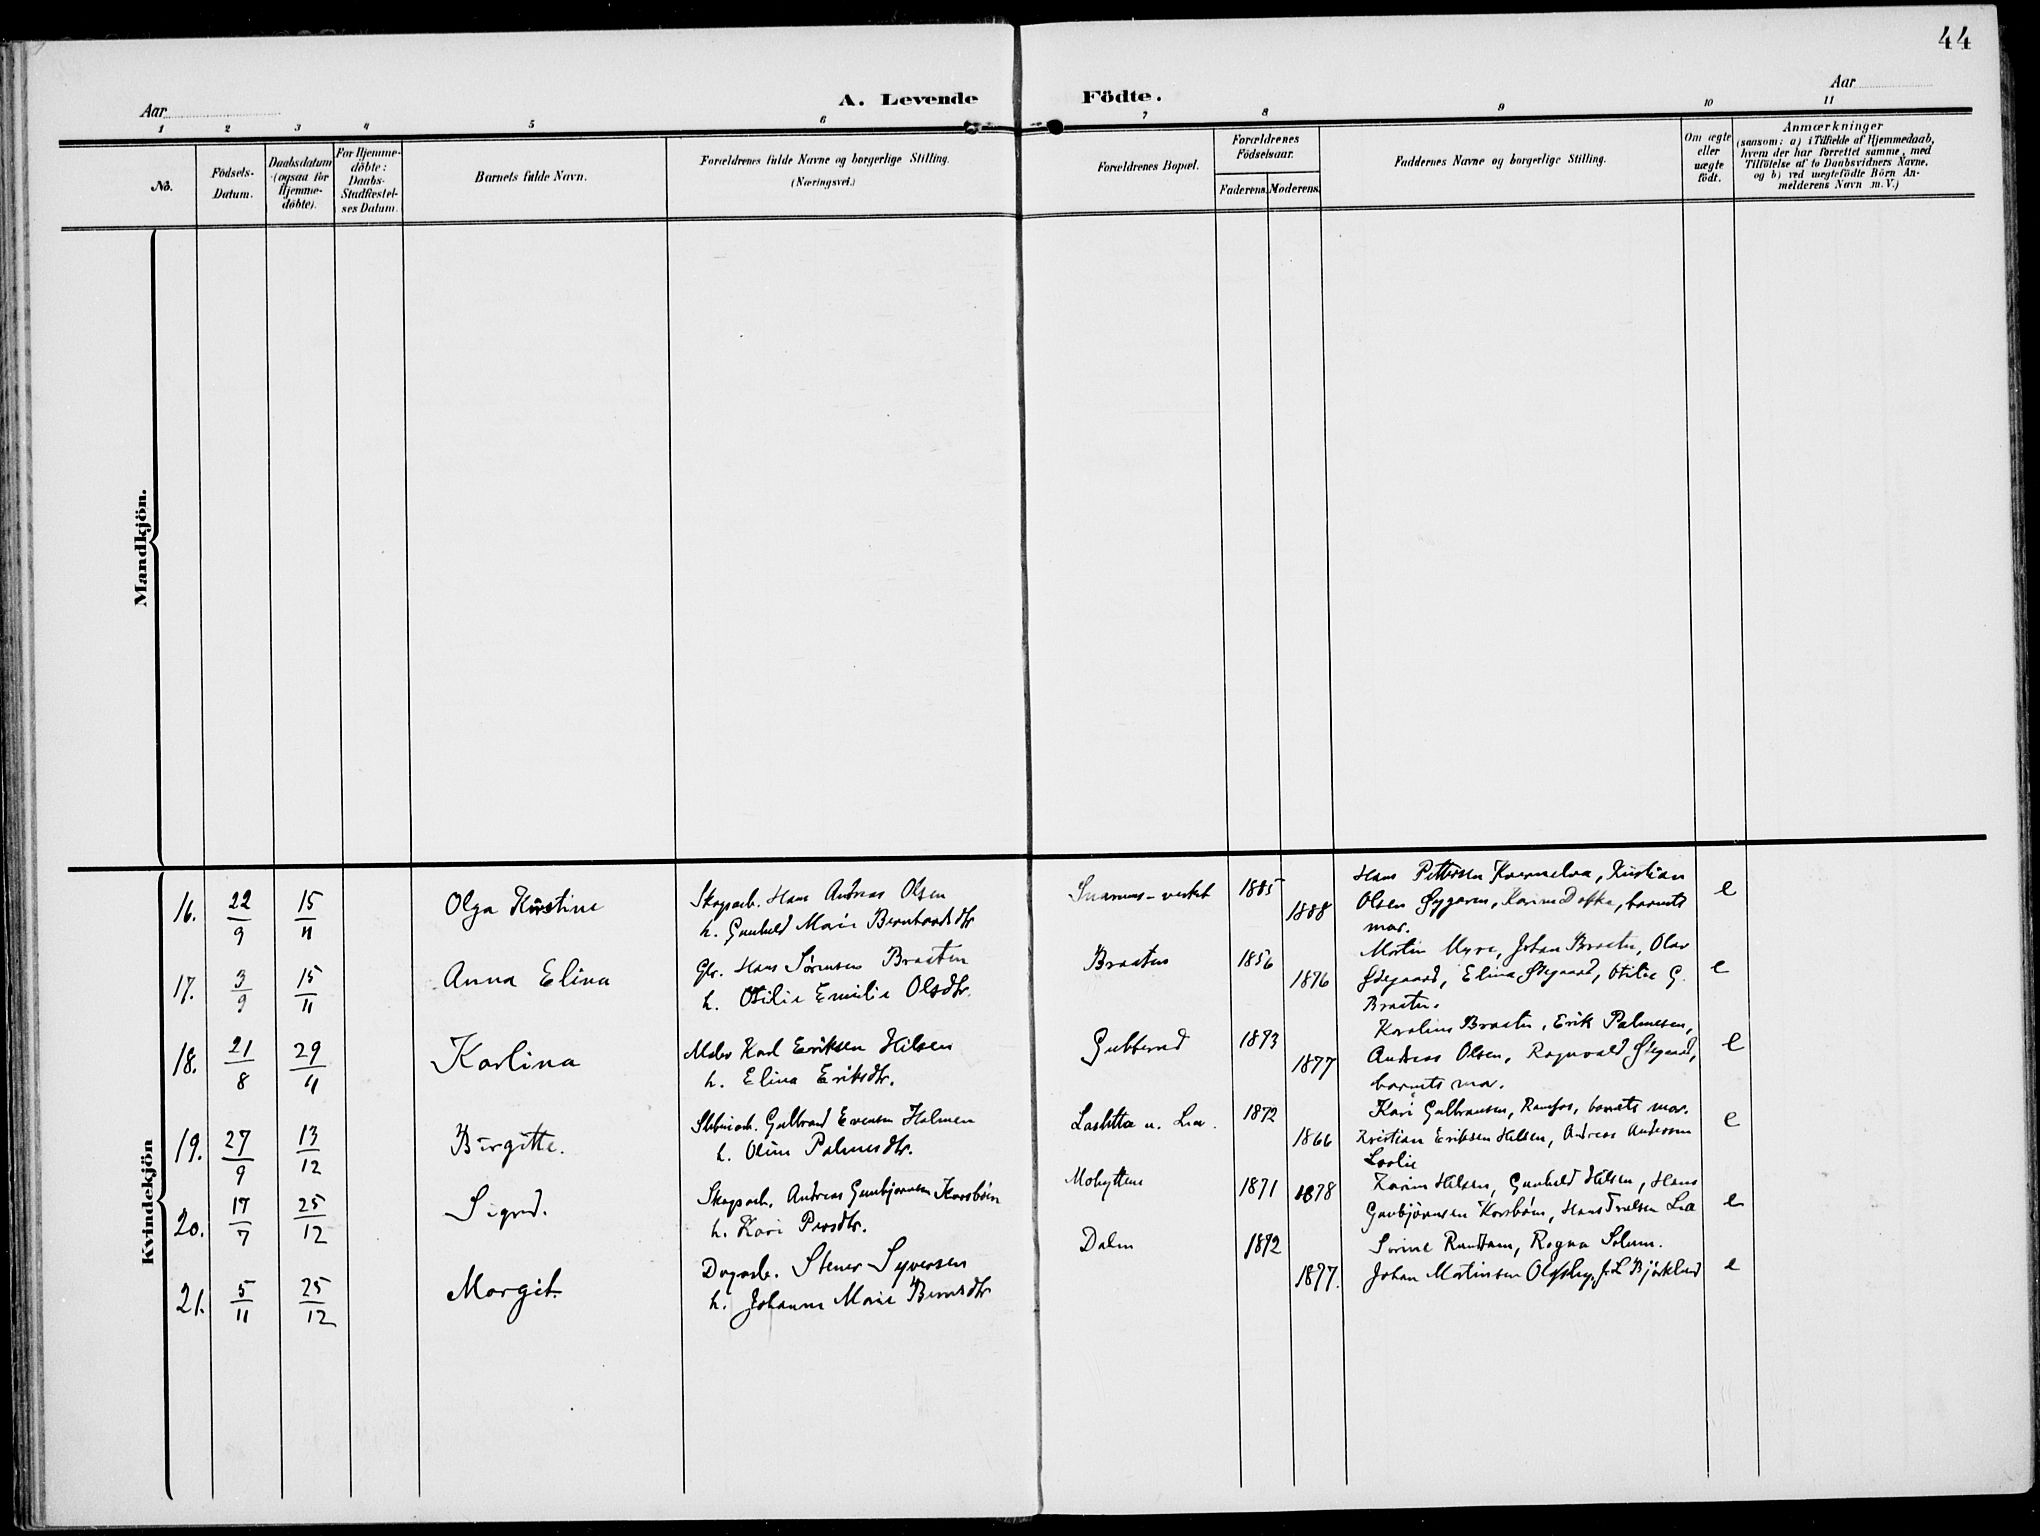 44
Aar
A. Levende Födte.
Aar
1 2 3 4 5 6 7 8 9 10 11
No.
Födsels-
Datum.
Daabsdatum
(ogsaa for
Hjemme-
döbte).
For Hjemme-
döbte:
Daabs-
Stadfæstel-
ses Datum.
Barnets fulde Navn.
Forældrenes fulde Navne og borgerlige Stilling.
(Næringsvei.)
Forældrenes Bopæl.
Forældrenes
Födselsaar.
Faderens. Moderens.
Faddernes Navne og borgerlige Stilling.
Om ægte
eller
uægte
födt.
Anmærkninger
(sansom: a) i Tilfælde af Hjemmedaab,
hvem der har forrettet samme, med
Tilföielse af to Daabsvidners Navne,
og b) ved uægtefödte Börn An-
melderens Navn m. V.)
Mandkjön.
Kvindekjön
16. 22/9 15/11 Olga Kirstine
Skogsarb. Hans Andreas Olsen
h. Gunhild Marie Bernhardsdtr
Snarums-verket 1885
1888
Hans Pettersen Kvernelva, Kristian
Olsen Nygaren, Karine Dofke, barnets
mor.
e
17. 3/9 15/11 Anna Elina
Gbr. Hans Sørensen Braaten
h. Otilie Emilie Olsdtr.
Braaten 1856
1876
Martin Myre, Johan Braaten, Olav
Ødegaard, Elina Ødegaard, Otilie G.
Braaten.
e
18. 21/8 29/11 Karlina
Maler Karl Eriksen Hilsen
h. Elina Eriksdtr.
Gubberud 1873
1877
Karoline Braaten, Erik Palmesen,
Andreas Olsen, Ragnvald Ødegaard,
barnets mor.
e
19. 27/9 13/12 Birgitte.
Gulbrand Evensen Holmen
h. Oline Palmesdtr.
u. Lia. 1872
1866
Kari Gulbransen, Ramfos, barnets mor.
Kristian Eriksen Hilsen, Andreas Andersen
e
20. 17/7 25/12 Sigrid.
Skogsarb. Andreas Gunbjørnsen Korsbøen
h. Kari Persdtr.
Mohyttene 1871 1878
Karen Hilsen, Gunhild Hilsen, Hans
Gunbjørnsen Korsbøen, Hans Truelsen Lia
e
21. 5/11 25/12 Margit.
Dagarb. Stener Syversen
h. Johanne Marie Berntsdtr
Dalen 1872
1877.
Sørine Rundtom, Ragna Solum.
Johan Martinsen Olafsby, J. L. Bjørklund
e